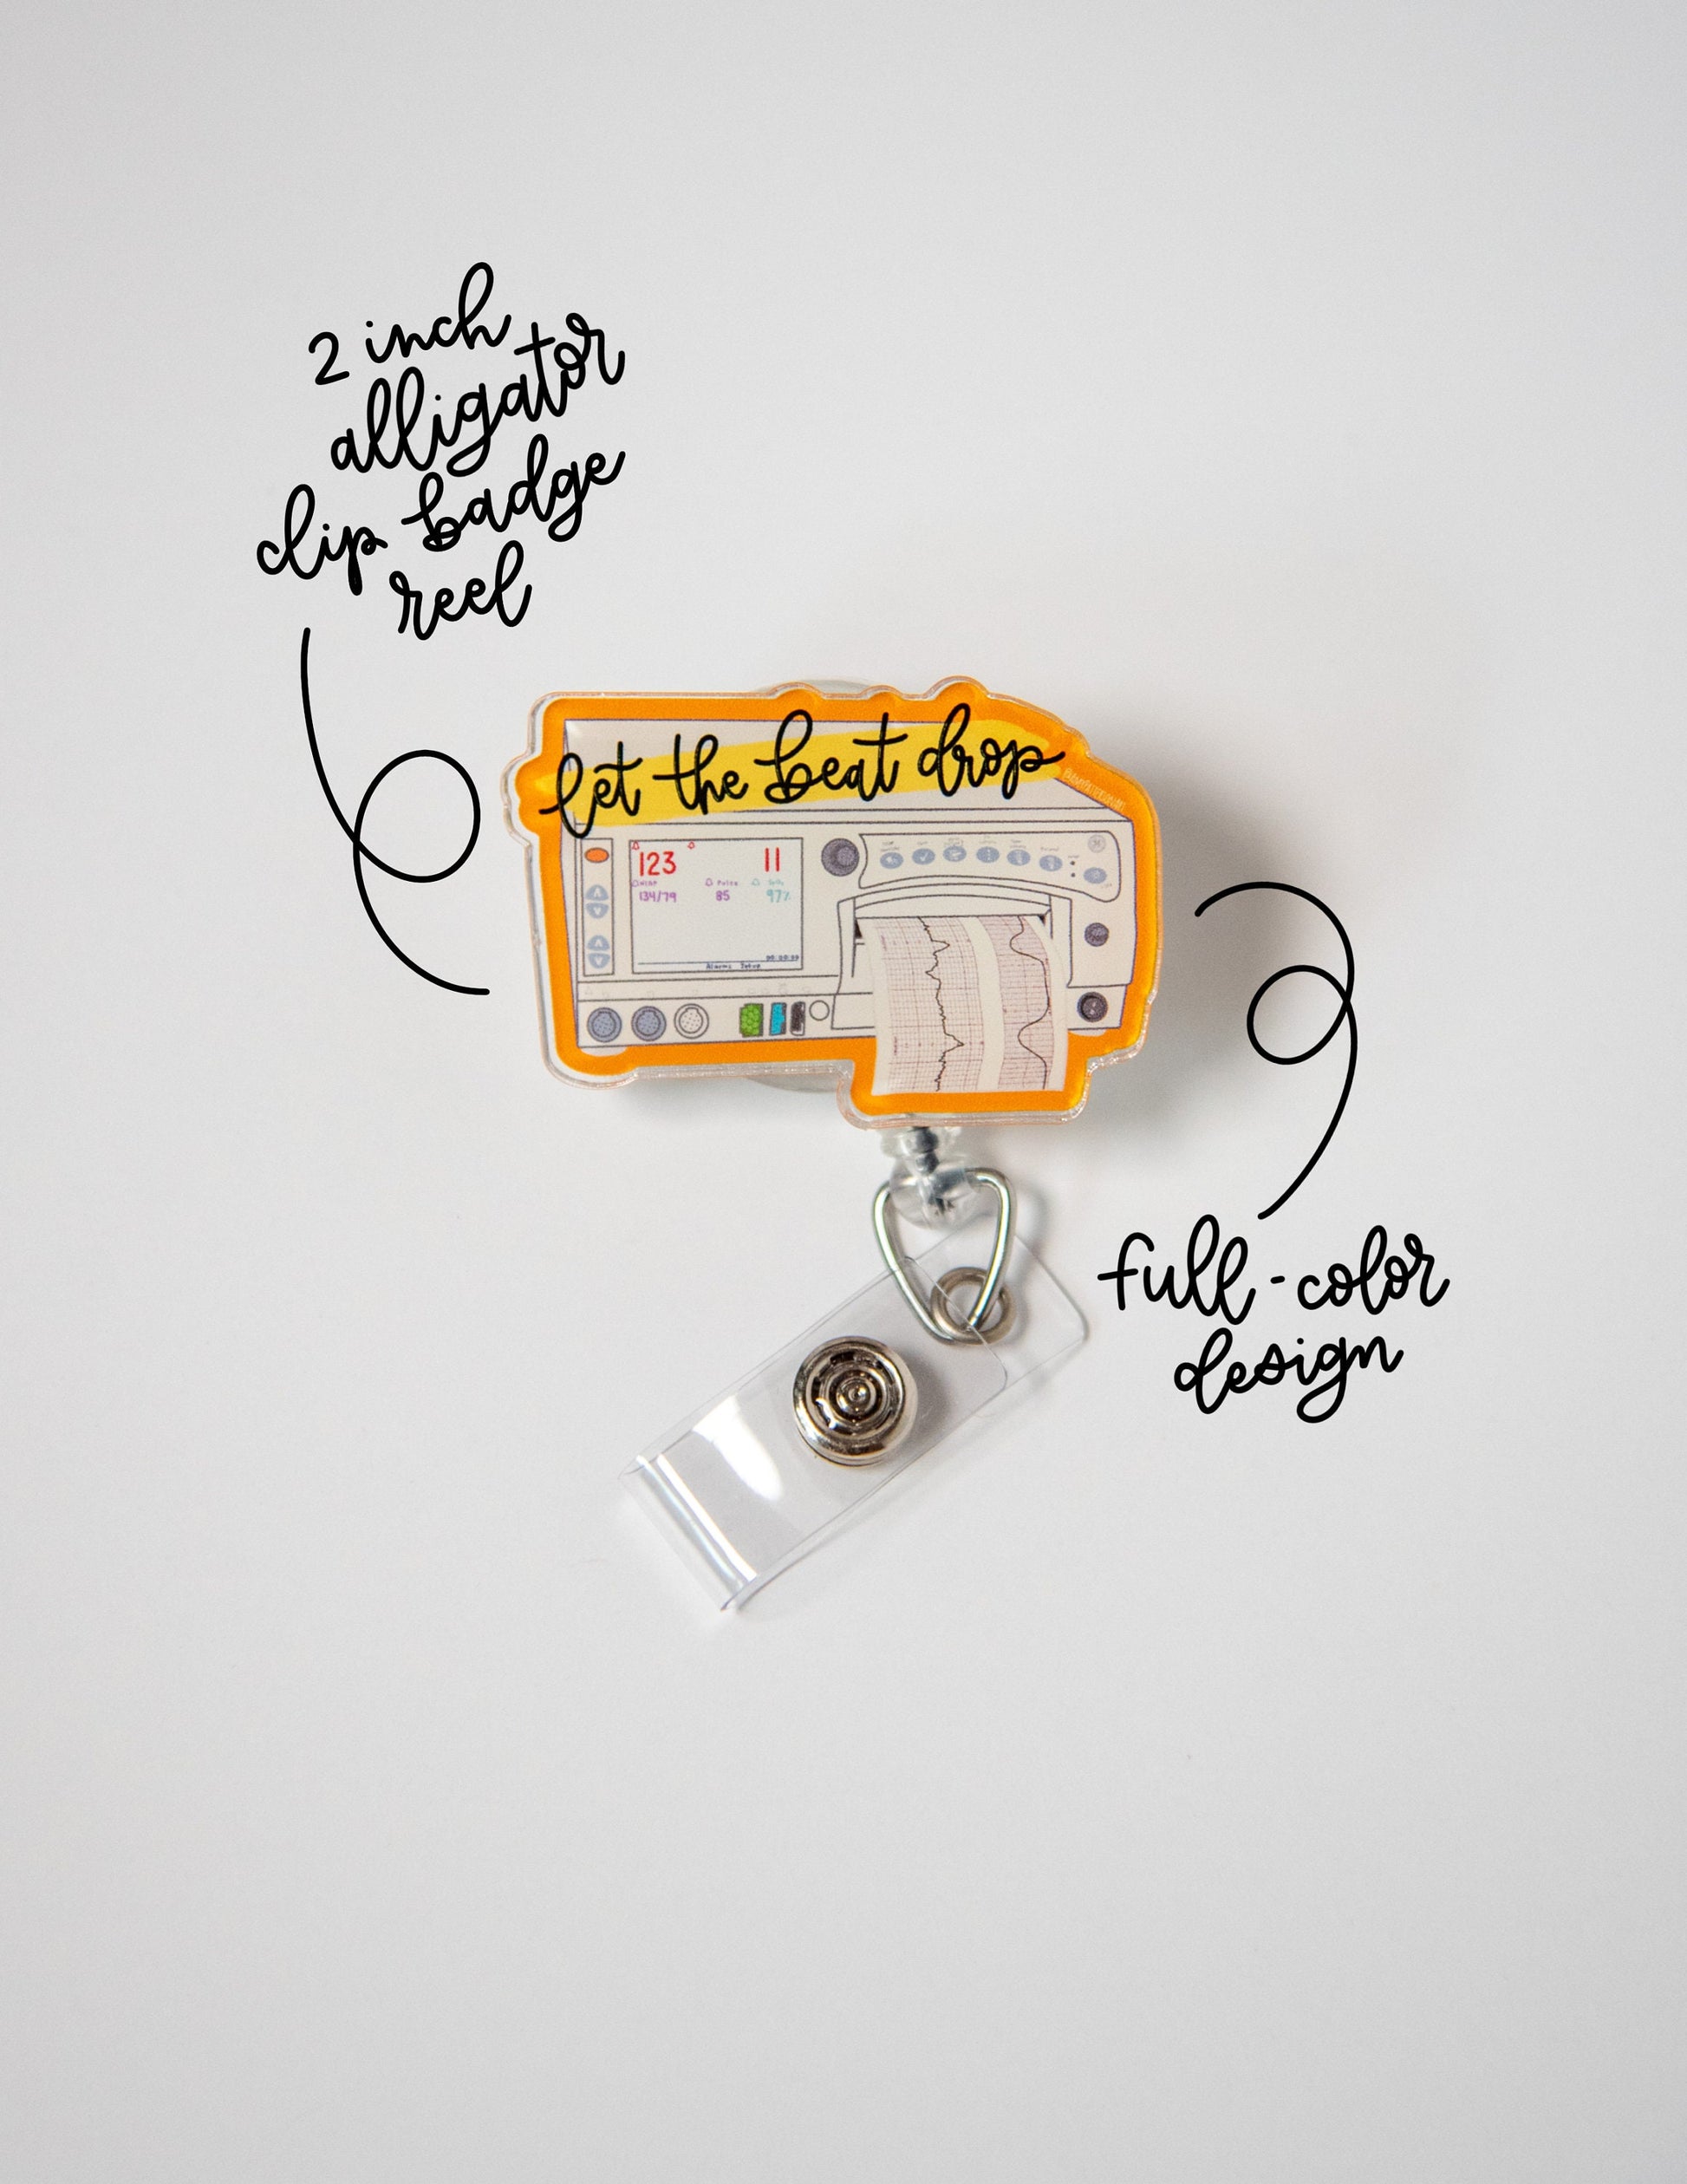 2 inch
alligator
clip badge
reel
let the beat drop
123 11
NIBP Pulse SpO₂
134/79 85 97%
Alarms Setup
full-color
design